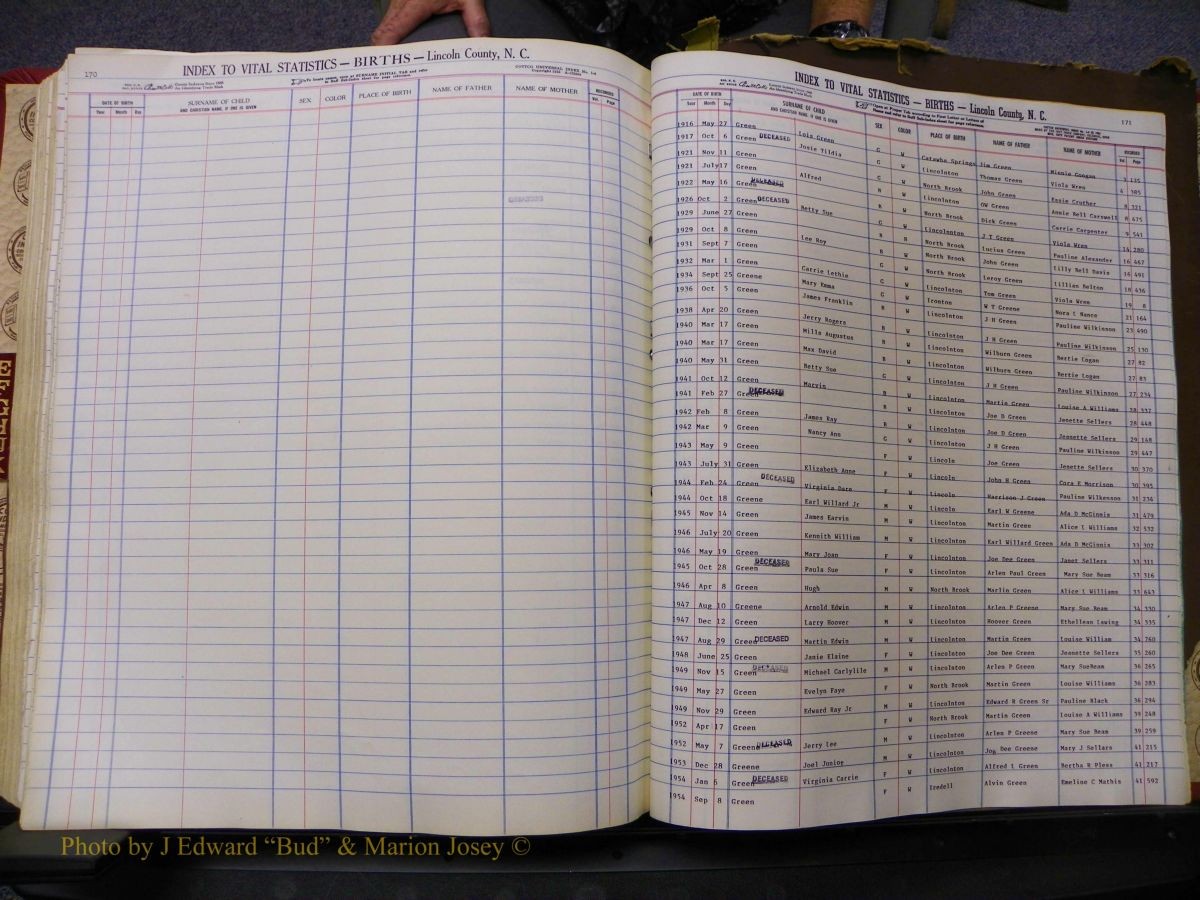 170
INDEX TO VITAL STATISTICS — BIRTHS — Lincoln County, N. C.
DATE OF BIRTH SURNAME OF CHILD SEX COLOR PLACE OF BIRTH NAME OF FATHER NAME OF MOTHER RECORDED
Year Month Day AND CHRISTIAN NAME, IF ONE IS GIVEN Vol. Page
INDEX TO VITAL STATISTICS — BIRTHS — Lincoln County, N. C.
171
DATE OF BIRTH SURNAME OF CHILD SEX COLOR PLACE OF BIRTH NAME OF FATHER NAME OF MOTHER RECORDED
Year Month Day AND CHRISTIAN NAME, IF ONE IS GIVEN Vol. Page
1916 May 27 Green Lois Green G W Catawba Springs Jim Green Minnie Googan 3 135
1917 Oct 6 Green DECEASED Josie Tildia G W Lincolnton Thomas Green Viola Wren 4 385
1921 Nov 11 Green G W North Brook John Green Essie Cruther 8 321
1921 July17 Green Alfred B W Lincolnton OW Green Annie Bell Carswell 8 475
1922 May 16 Green DECEASED B W North Brook Dick Green Carrie Carpenter 9 541
1926 Oct 2 Green DECEASED Betty Sue G W Lincolnton J T Green Viola Wren 14 280
1929 June 27 Green B N North Brook Lucius Green Pauline Alexander 16 467
1929 Oct 8 Green Lee Roy B W North Brook John Green Lilly Bell Davis 16 491
1931 Sept 7 Green G W North Brook Leroy Green Lillian Belton 18 436
1932 Mar 1 Green Carrie Lethie G W Lincolnton Tom Green Viola Wren 19 8
1934 Sept 25 Greene Mary Emma G W Ironton W T Greene Nora L Nance 21 164
1936 Oct 5 Green James Franklin B W Lincolnton J H Green Pauline Wilkinson 23 490
1938 Apr 20 Green Jerry Rogers B W Lincolnton J H Green Pauline Wilkinson 25 130
1940 Mar 17 Green Mills Augustus B W Lincolnton Wilburn Green Bertie Logan 27 82
1940 Mar 17 Green Max David B W Lincolnton Wilburn Green Bertie Logan 27 83
1940 May 31 Green Betty Sue G W Lincolnton J H Green Pauline Wilkinson 27 234
1941 Oct 12 Green Marvin B W Lincolnton Martin Green Louise A Williams 28 337
1941 Feb 27 Green DECEASED B W Lincolnton Joe D Green Jenette Sellers 28 448
1942 Feb 8 Green James Ray B W Lincolnton Joe D Green Jeanette Sellers 29 148
1942 Mar 9 Green Nancy Ann G W Lincolnton J H Green Pauline Wilkinson 29 447
1943 May 9 Green F W Lincoln Joe Green Jenette Sellers 30 370
1943 July 31 Green Elizabeth Anne F W Lincoln John H Green Cora E Morrison 30 395
1944 Feb 24 Green DECEASED Virginia Dare F W Lincoln Harrison J Green Pauline Wilkenson 31 234
1944 Oct 18 Greene Earl Willard Jr M W Lincoln Earl W Greene Ada D McGinnis 31 479
1945 Nov 14 Green James Earvin M W Lincolnton Martin Green Alice L Williams 32 532
1946 July 20 Green Kennith William M W Lincolnton Earl Willard Green Ada D McGinnis 33 302
1946 May 19 Green Mary Joan F W Lincolnton Joe Dee Green Janet Sellers 33 311
1945 Oct 28 Green DECEASED Paula Sue F W Lincolnton Arlen Paul Green Mary Sue Beam 33 316
1946 Apr 8 Green Hugh M W North Brook Marlin Green Alice L Williams 33 643
1947 Aug 10 Greene Arnold Edwin M W Lincolnton Arlen P Greene Mary Sue Beam 34 330
1947 Dec 12 Green Larry Hoover M W Lincolnton Hoover Green Ethellean Lawing 34 335
1947 Aug 29 Green DECEASED Martin Edwin M W Lincolnton Martin Green Louise William 34 760
1948 June 25 Green Janie Elaine F W Lincolnton Joe Dee Green Jeanette Sellers 35 260
1949 Nov 15 Green DECEASED Michael Carlylile M W Lincolnton Arlen P Green Mary SueBeam 36 265
1949 May 27 Green Evelyn Faye F W North Brook Martin Green Louise Williams 36 283
1949 Nov 29 Green Edward Ray Jr M W Lincolnton Edward R Green Sr Pauline Black 36 294
1952 Apr 17 Green F W North Brook Martin Green Louise A Williams 39 248
1952 May 7 Greene DECEASED Jerry Lee M W Lincolnton Arlen P Greene Mary Sue Beam 39 259
1953 Dec 28 Greene Joel Junior M W Lincolnton Joe Dee Greene Mary J Sellars 41 215
1954 Jan 6 Green DECEASED Virginia Carrie F W Lincolnton Alfred L Green Bertha R Pless 41 217
1954 Sep 8 Green F W Iredell Alvin Green Emeline C Mathis 41 592
Photo by J Edward “Bud” & Marion Josey ©